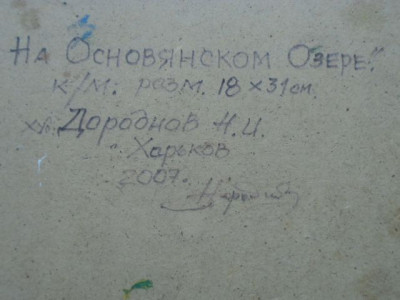 На Основянском Озере."
к/м. разм. 18×31см.
худ. Дороднов Н.И.
Харьков
2007.